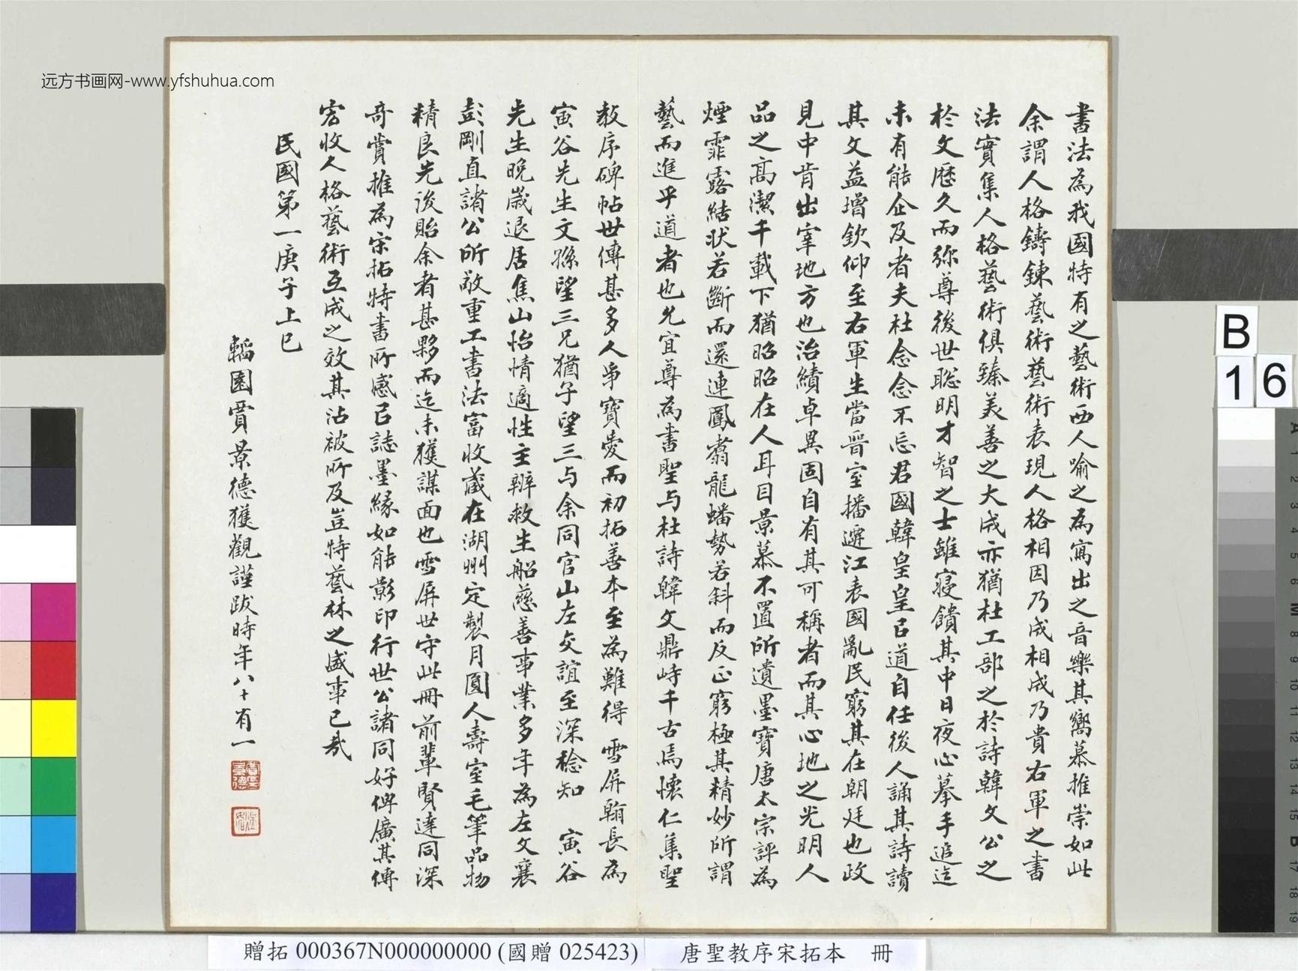 远方书画网-www.yfshuhua.com
書法為我國特有之藝術西人喻之為寫出之音樂其嚮慕推崇如此
余謂人格鑄鍊藝術藝術表現人格相因乃成相成乃貴右軍之書
法實集人格藝術俱臻美善之大成亦猶杜工部之於詩韓文公之
於文歷久而弥尊後世聡明才智之士雖寢饋其中日夜心摹手追迄
未有能企及者夫杜念念不忘君國韓皇皇以道自任後人誦其詩讀
其文益增欽仰至右軍生當晋室播遷江表國亂民窮其在朝廷也政
見中肯出宰地方也治績卓異固自有其可稱者而其心地之光明人
品之高潔千載下猶昭昭在人耳目景慕不置所遺墨寶唐太宗評為
煙霏露結狀若斷而還連鳳翥龍蟠勢若斜而反正窮極其精妙所謂
藝而進乎道者也允宜尊為書聖与杜詩韓文鼎峙千古焉懷仁集聖
教序碑帖世傳甚多人爭寶愛而初拓善本至為難得 雪屏翰長為
寅谷先生文孫望三兄猶子望三与余同官山左交誼至深稔知 寅谷
先生晚歲退居焦山怡情適性主辦救生船慈善事業多年為左文襄
彭剛直諸公所敬重工書法富收藏在湖州定製月圓人壽室毛筆品物
精良先後貽余者甚夥而迄未獲謀面也雪屏世守此冊前輩賢達同深
奇賞推為宋拓特書所感以誌墨緣如能影印行世公諸同好俾廣其傳
宏收人格藝術互成之效其沾被所及豈特藝林之盛事已哉
民國第一庚子上巳
韜園賈景德獲觀謹跋時年八十有一
B
16
贈拓 000367N000000000 (國贈 025423) 唐聖教序宋拓本 冊